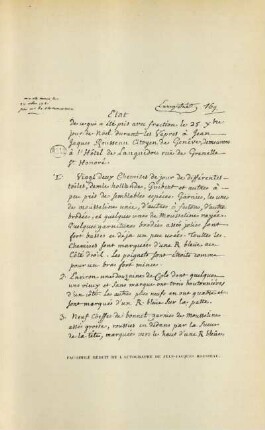 Etat
de ce qui a été pris avec fraction le 25. Xbre
jour de Noël durant les Vêpres à Jean
Jaques Rousseau Citoyen de Genève, demeurant
à l'Hôtel de Languedoc rue de Grenelle
St Honoré
1. Vingt deux Chemises de jour de différentes
toiles, demie hollande, Guibert et autres à
peu près de semblable espèce. Garnies, les unes
de mousseline unie, d'autres à feston, d'autres
brodée, et quelques unes de Mousseline rayée.
Quelques garnitures brodées assez jolies sont
fort basses et déjà un peu usées. Toutes les
Chemises sont marquées d'une R bleüe au
Côté droit. Les poignets sont étroits comme
pour un bras fort mince.
2. Environ une douzaine de Cols dont quelques
uns vieux et sans marque ont trois boutonnières
d'un côté. les autres plus neufs en ont quatre et
sont marqués d'un R. bleu sur la patte.
3. Neuf Coeffes de bonnet garnies de mousseline
assez grosse, roussies en dedans par la sueur
de la tête, marquées vers le haut d'une R bleüe.
FAC-SIMILE RÉDUIT DE L'AUTOGRAPHE DE JEAN-JACQUES ROUSSEAU.